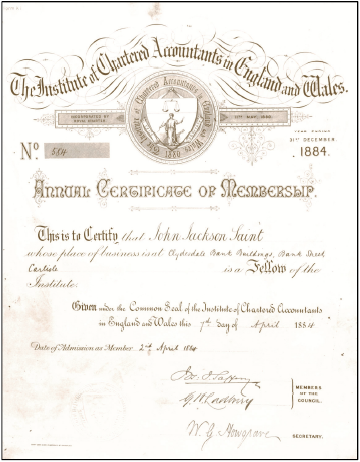 The Institute of Chartered Accountants in England and Wales.
INCORPORATED BY ROYAL CHARTER
11TH MAY, 1880.
YEAR ENDING
31ST DECEMBER,
1884.
No. 584
ANNUAL CERTIFICATE OF MEMBERSHIP.
This is to Certify that John Jackson Saint
whose place of business is at Clydesdale Bank Buildings, Bank Street,
Carlisle is a Fellow of the
Institute.
Given under the Common Seal of the Institute of Chartered Accountants
in England and Wales this 7th day of April 1884
Date of Admission as Member 2nd April 1884
MEMBERS
OF THE
COUNCIL.
W. G. Howgrave SECRETARY.